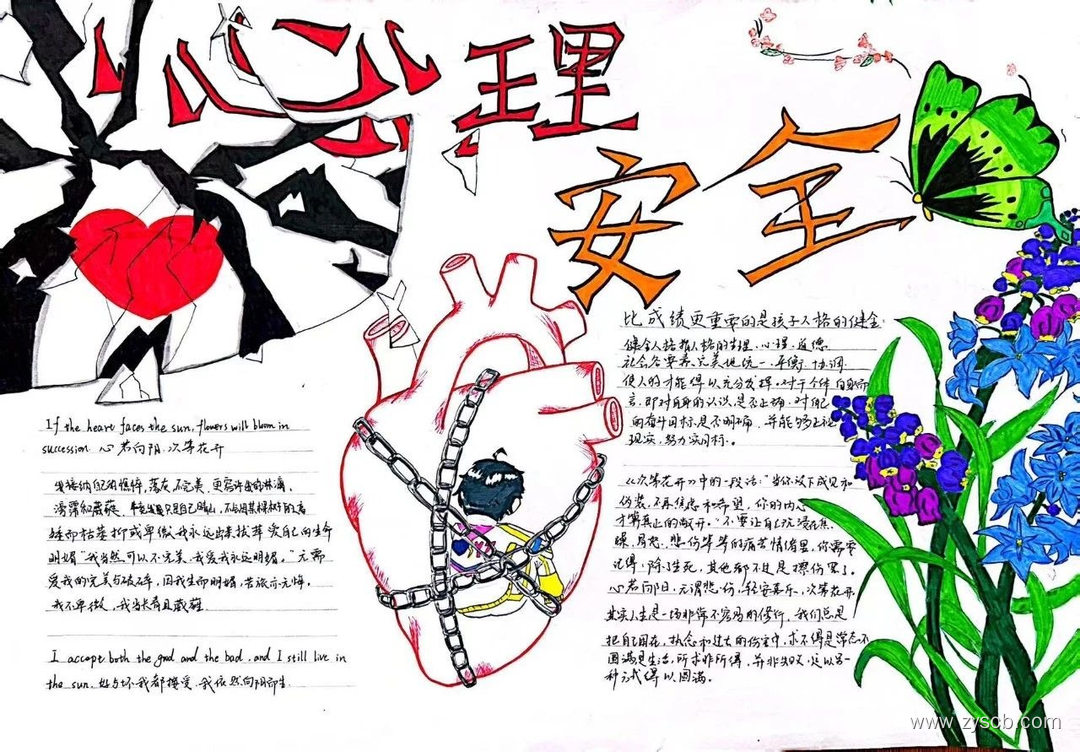 心理
安全
If the heart faces the sun, flowers will bloom in
succession 心若向阳.次第花开
要接纳自己的憔悴,落灰,不完美,更容许
矮而枯萎打或卑微,我永远出来拔萃 爱自向生命
明媚"我当然可以不完美,我爱我永远明媚。"无需
爱我的完美与破碎,因我生而明媚,苦旅亦无悔,
我不卑微,我当长有且葳蕤
I accept both the good and the bad, and I still live in
the sun, 好与坏我都接受,我依然向阳而生
比成绩更重要的是孩子人格的健全:
健全人格指人格的生理、心理、道德
社会各要素完美地统一、平衡、协调
使人的才能得以充分发挥,对于个体自身而
言,即对自身的认识是否正确,对自己
向奋斗目标是否明确,并能够正视
现实,努力实目标。
《次第花开》中的一段话:"当你放下成见和
伪装,不再焦虑和希望,你的内心
才算真正的敞开。"不要让自己沉浸在焦
躁、自怨、悲伤等等的痛苦情绪里,你需要
记得,除了生死,其他都不过是擦伤罢了。
心若向阳,无谓悲伤,轻安喜乐,次第花开
其实人生是一场非常不容易的修行,我们总是
把自己困在,执念和过去的伤害中,求不得是常态,不
圆满是生活,所求非所得,并非如此,足以另一
种方式得以圆满。
www.zyscb.com